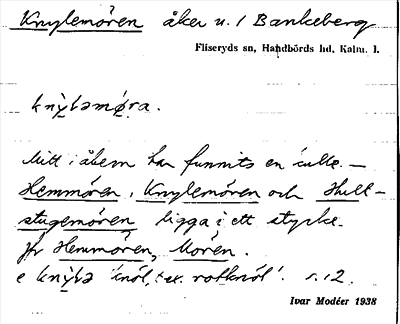 Knylemören åker u. 1 Bankeberg
Fliseryds sn, Handbörds hd, Kalm. l.
knỳləmø̀ra.
Mitt i åkern har funnits en kulle. —
Hemmören, Knylemören och Hull-
stugemören ligga i ett stycke.
Jfr Hemmören, Mören.
e knỳlə 'knöl, t. ex. rotknöl'. s. 12.
Ivar Modéer 1938